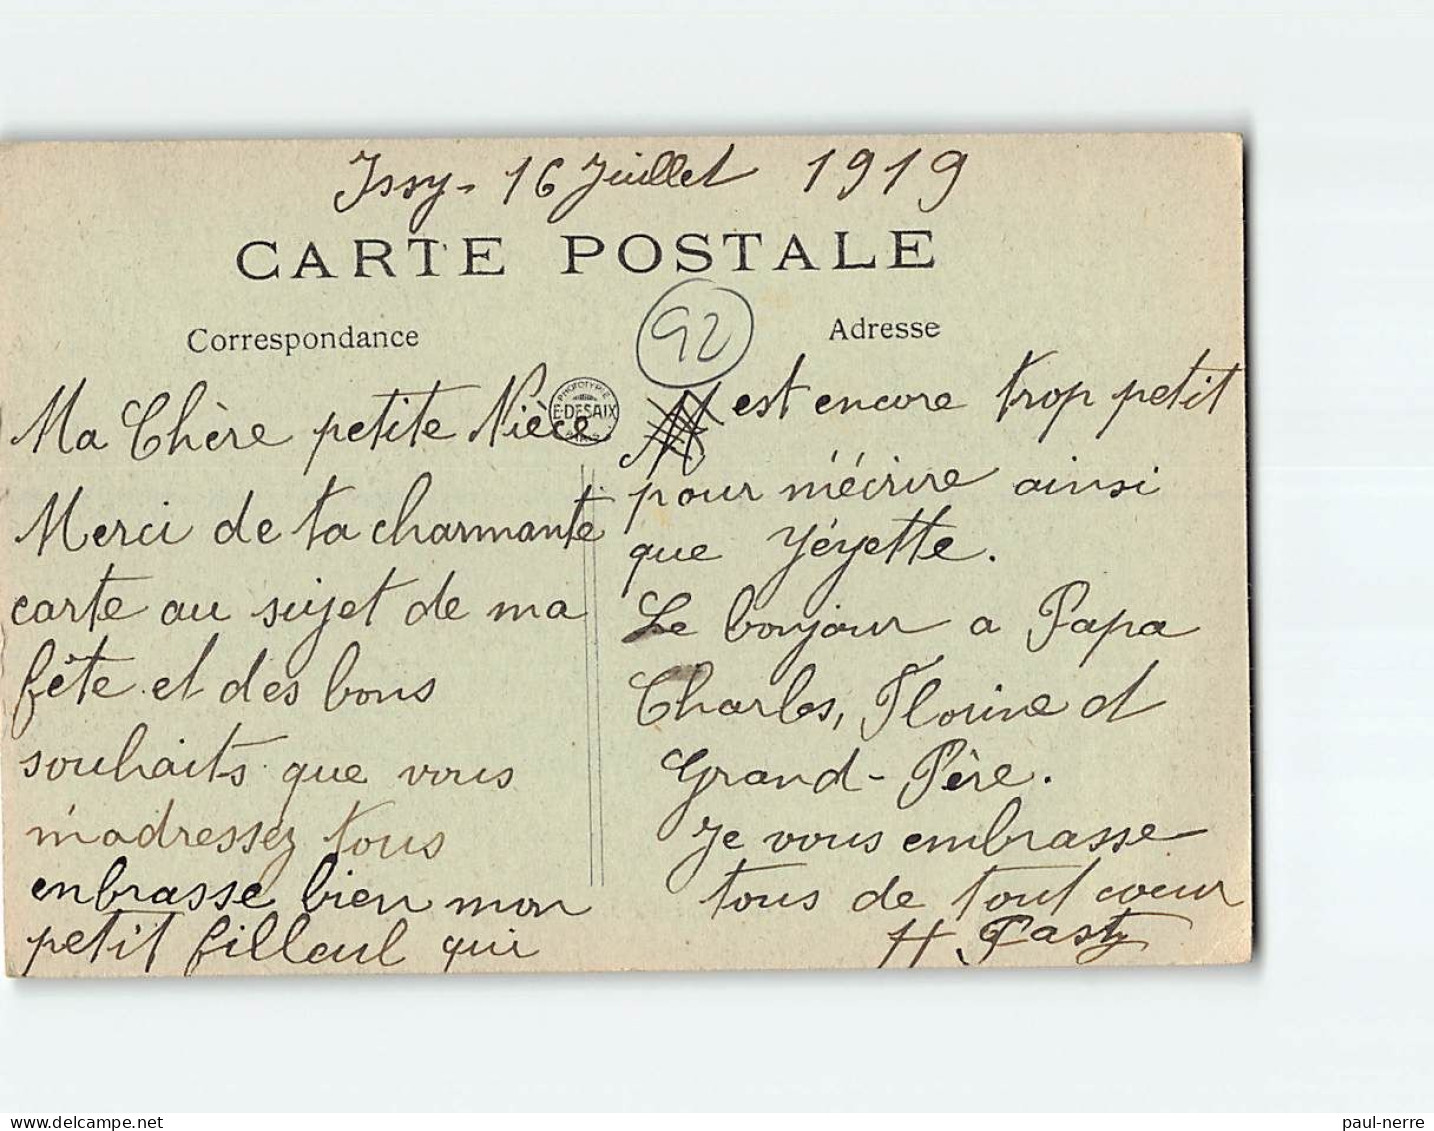 Issy - 16 Juillet 1919
CARTE POSTALE
Correspondance
Ma Chère petite Nièce
Merci de ta charmante
carte au sujet de ma
fête et des bons
souhaits que vous
m'adressez tous
enbrasse bien mon
petit filleul qui
PHOTOTYPIE
E. DESAIX
92
Adresse
est encore trop petit
pour m'écrire ainsi
que Yéyette.
Le bonjour a Papa
Charles, Florine et
Grand-Père.
Je vous embrasse
tous de tout coeur
H.
paul-nerre
delcampe.net